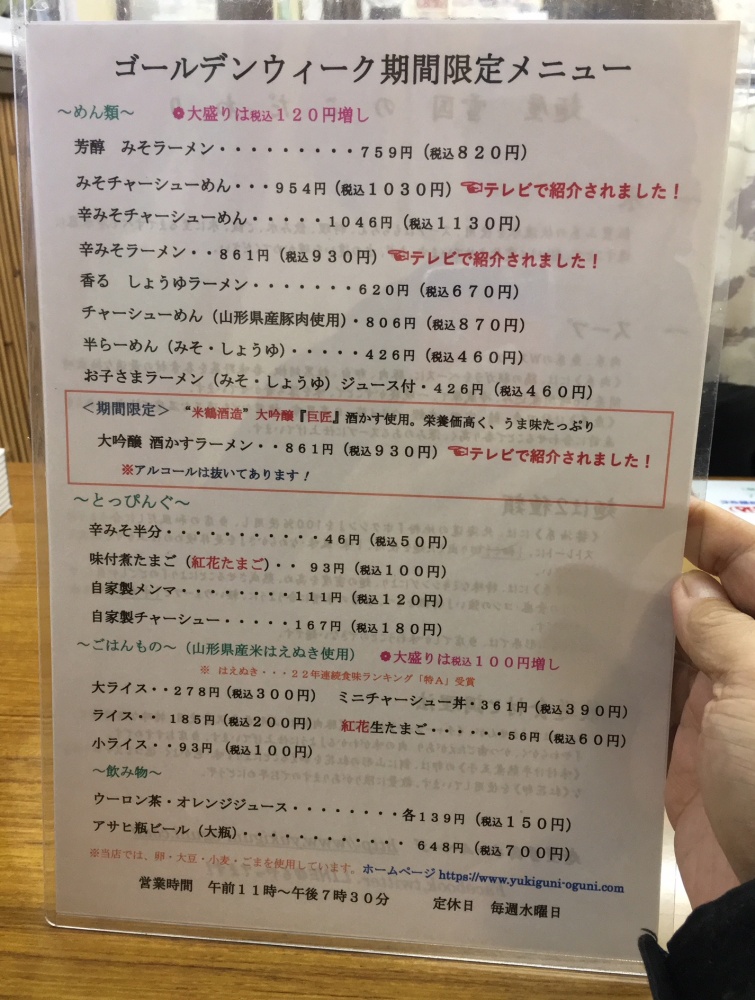 ゴールデンウィーク期間限定メニュー
～めん類～ ❁大盛りは税込１２０円増し
芳醇 みそラーメン・・・・・・・・・７５９円（税込８２０円）
みそチャーシューめん・・・９５４円（税込１０３０円）☜テレビで紹介されました！
辛みそチャーシューめん・・・・・１０４６円（税込１１３０円）
辛みそラーメン・・８６１円（税込９３０円）☜テレビで紹介されました！
香る しょうゆラーメン・・・・・・・６２０円（税込６７０円）
チャーシューめん（山形県産豚肉使用）・８０６円（税込８７０円）
半らーめん（みそ・しょうゆ）・・・・・４２６円（税込４６０円）
お子さまラーメン（みそ・しょうゆ）ジュース付・４２６円（税込４６０円）
＜期間限定＞ “米鶴酒造”大吟醸『巨匠』酒かす使用。栄養価高く、うま味たっぷり
大吟醸 酒かすラーメン・・８６１円（税込９３０円）☜テレビで紹介されました！
※アルコールは抜いてあります！
～とっぴんぐ～
辛みそ半分・・・・・・・・・・・４６円（税込５０円）
味付煮たまご（紅花たまご）・・ ９３円（税込１００円）
自家製メンマ・・・・・・・・１１１円（税込１２０円）
自家製チャーシュー・・・・・１６７円（税込１８０円）
～ごはんもの～（山形県産米はえぬき使用） ❁大盛りは税込１００円増し
※ はえぬき・・・２２年連続食味ランキング「特Ａ」受賞
大ライス・・２７８円（税込３００円） ミニチャーシュー丼・３６１円（税込３９０円）
ライス・・ １８５円（税込２００円） 紅花生たまご・・・・・５６円（税込６０円）
小ライス・・９３円（税込１００円）
～飲み物～
ウーロン茶・オレンジジュース・・・・・・・・各１３９円（税込１５０円）
アサヒ瓶ビール（大瓶）・・・・・・・・・・・・ ６４８円（税込７００円）
※当店では、卵・大豆・小麦・ごまを使用しています。ホームページ https://www.yukiguni-oguni.com
営業時間 午前１１時～午後７時３０分 定休日 毎週水曜日